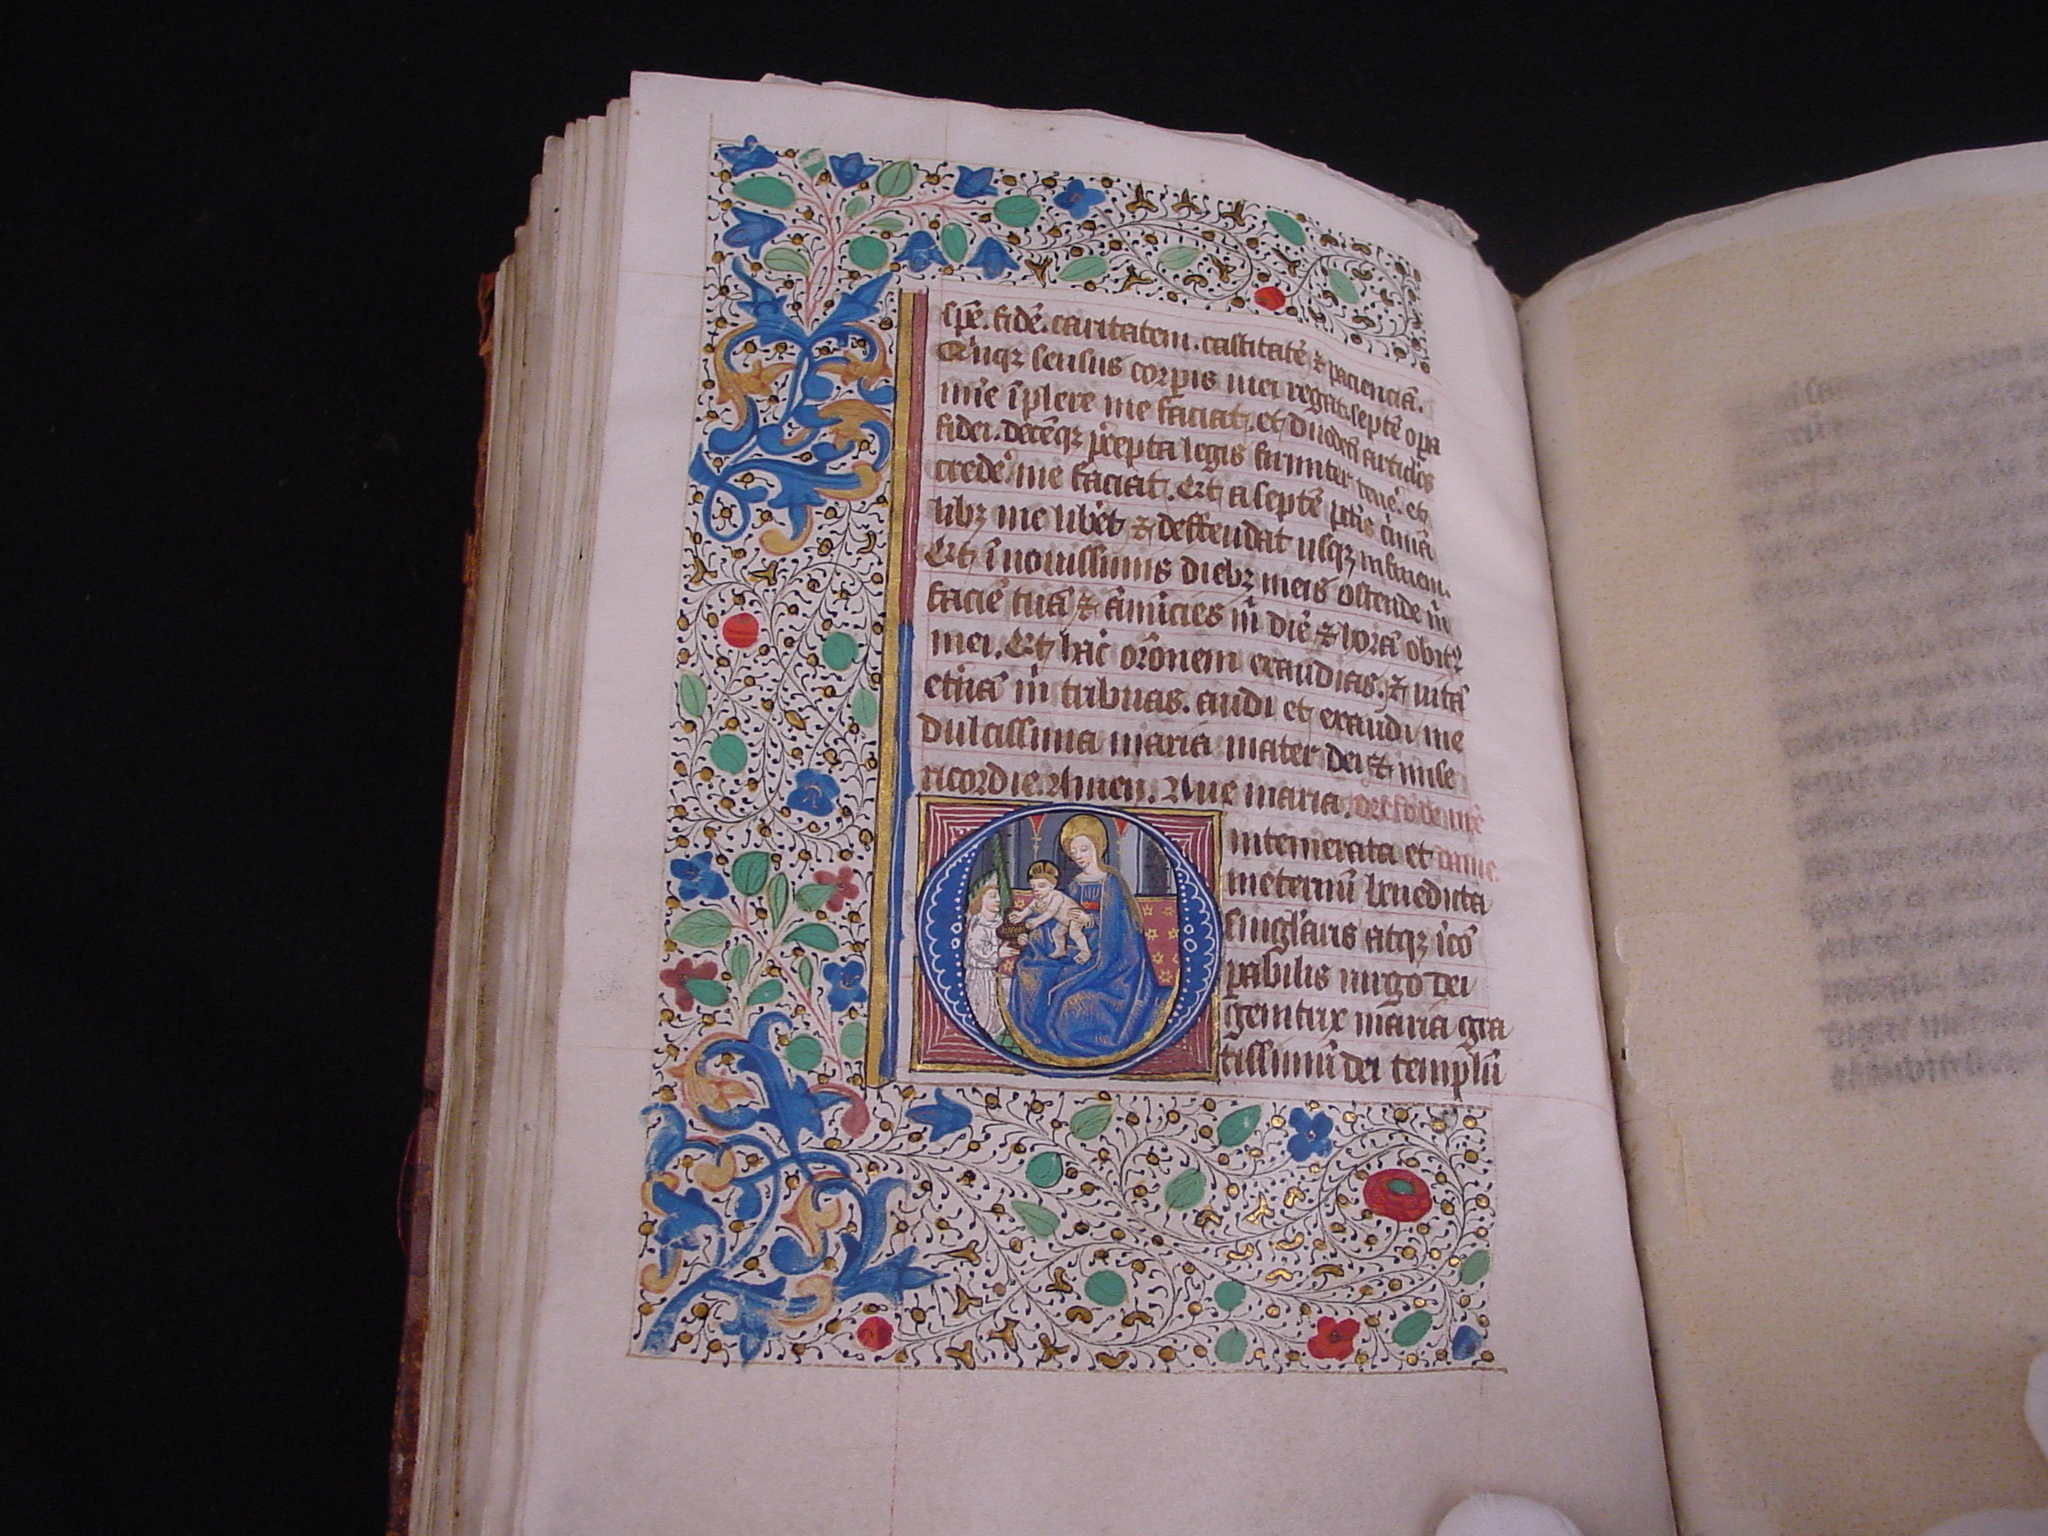 spē. fidē. caritatem. castitatē ⁊ pacienciā.
Quīqꝫ sensus corpis mei regat. septē opa
mīe īplere me faciat. et duodeci articlos
fidei. decēqꝫ p̄cepta legis firmiter tenē. et
credē me faciat. Et a septē pctīs c̄mīa
libꝫ me libet ⁊ deffendat usqꝫ in finem.
Et ī nouissimis diebꝫ meis ostende m̄
faciē tuā ⁊ ānūcies m̄ diē ⁊ horā obitꝰ
mei. Et hāc orōnem exaudias. ⁊ uitā
etnā m̄ tribuas. audi et exaudi me
dulcissima maria mater dei ⁊ mise
ricordie. Amen. Aue maria.
O intemerata et
ineternū benedicta
singlaris atqꝫ īcō
pabilis uirgo dei
genitrix maria gra
tissimū dei templū